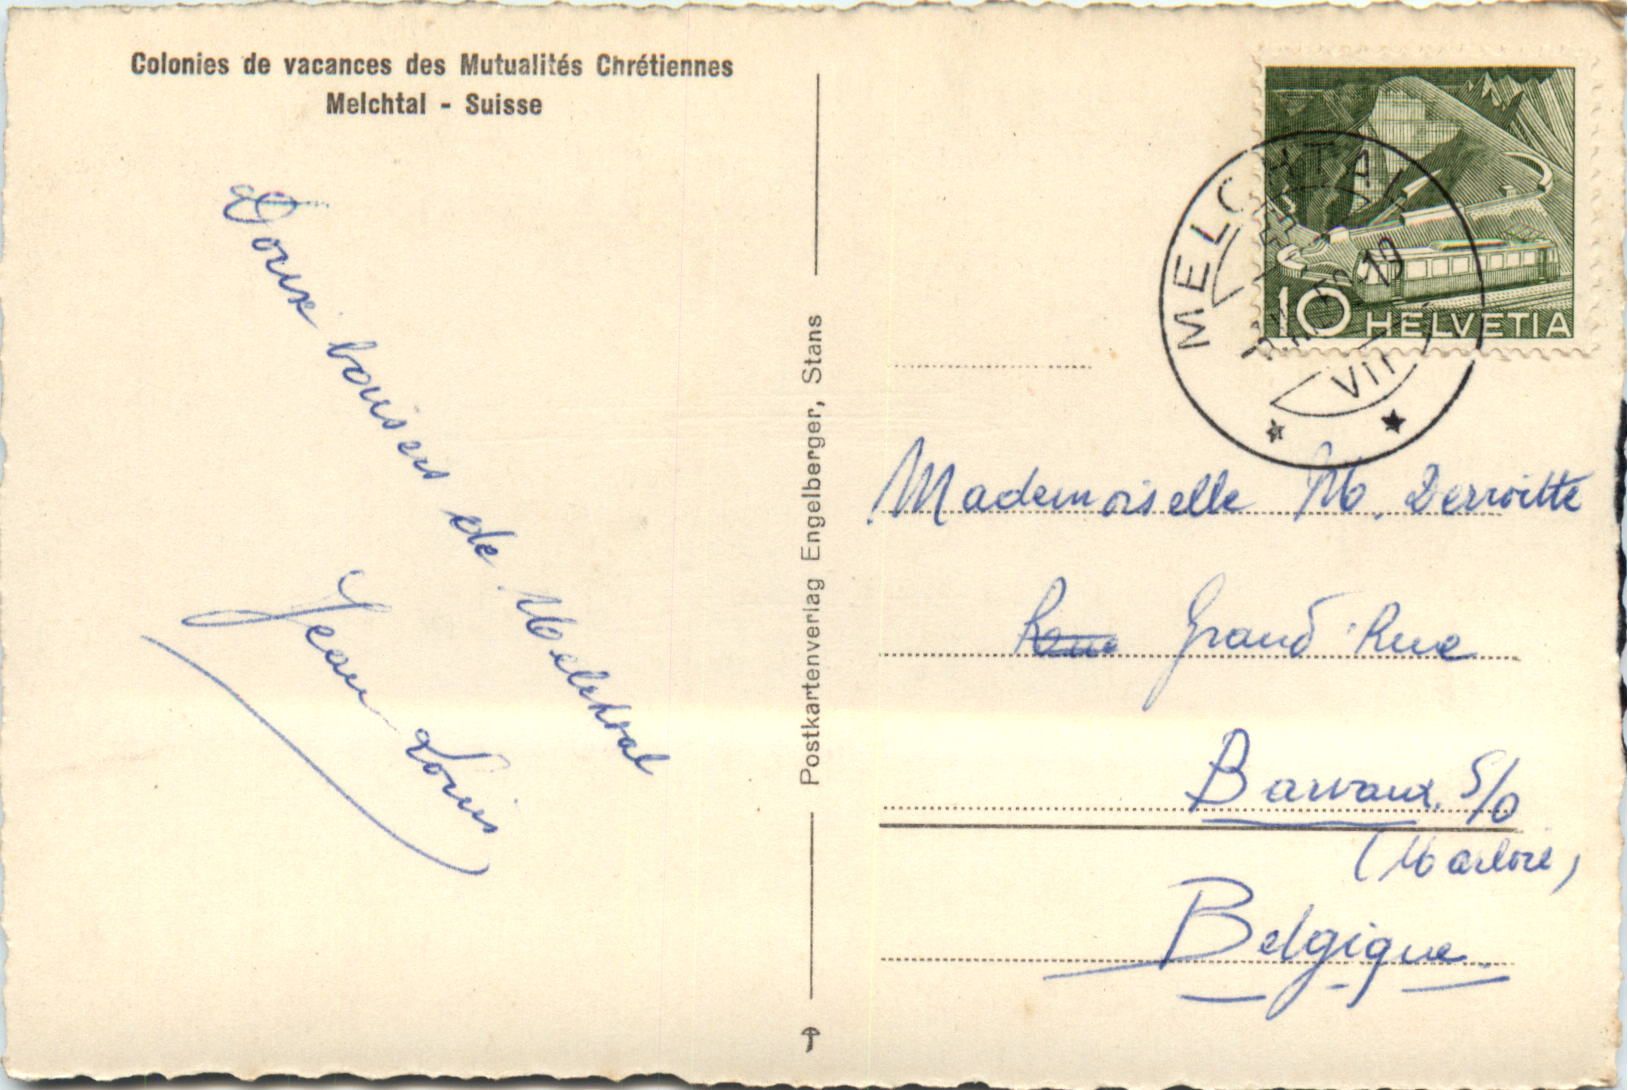 Colonies de vacances des Mutualités Chrétiennes
Melchtal - Suisse
Doux baisers de Melchtal
Jean Louis
Postkartenverlag Engelberger, Stans
MELCHTAL
VII
10 HELVETIA
Mademoiselle M. Derroitte
Grand'Rue
Barvaux S/O
(Marloie)
Belgique